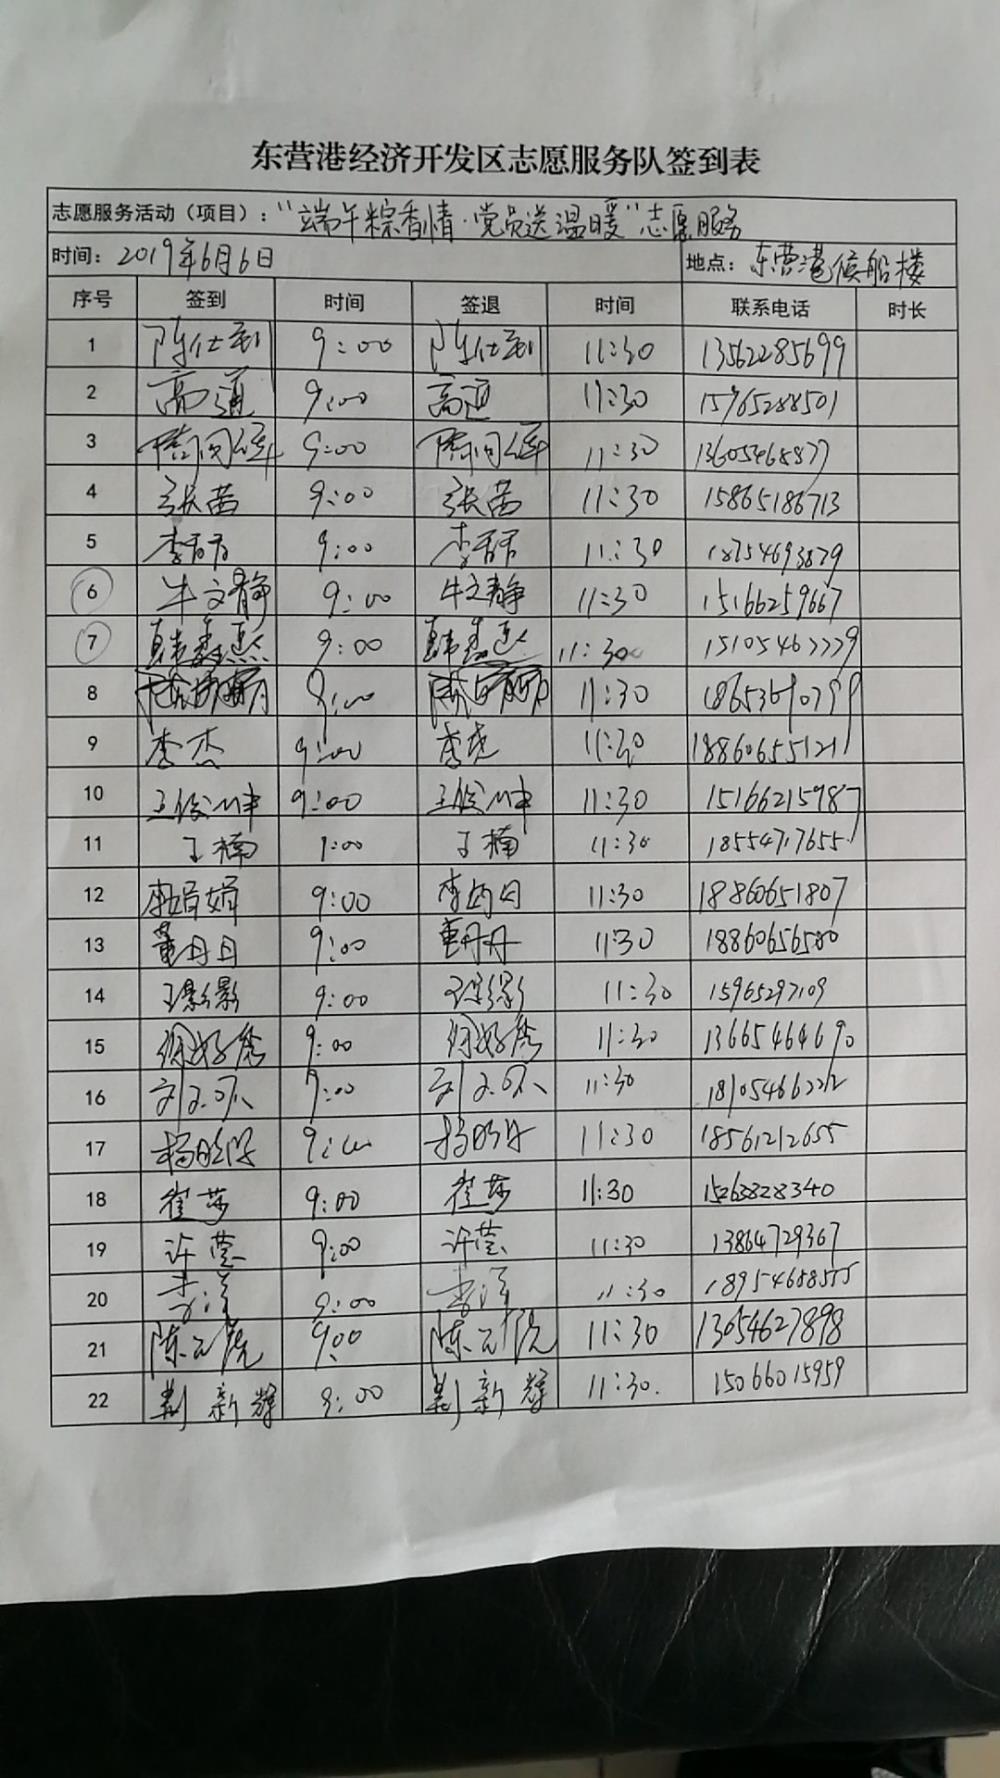 东营港经济开发区志愿服务队签到表
志愿服务活动（项目）：“端午粽香情·党员送温暖”志愿服务
时间：2019年6月6日 地点：东营港候船楼
序号 签到 时间 签退 时间 联系电话 时长
1 9:00 11:30 13562285699
2 高通 9:00 高通 11:30 15965288501
3 9:00 11:30 13605468877
4 张茜 9:00 张茜 11:30 15865186713
5 李君君 9:00 李君君 11:30 18754693879
6 牛文静 9:00 牛文静 11:30 15166259667
7 9:00 11:30 15105467779
8 9:00 11:30
9 李杰 9:00 11:30 18860655121
10 9:00 11:30 15166215987
11 王楠 9:00 王楠 11:30 18554717655
12 李娟娟 9:00 11:30 18860651807
13 董丹丹 9:00 董丹丹 11:30 18860656580
14 王影影 9:00 王影影 11:30 15965297109
15 9:00 11:30 13665464690
16 9:00 11:30
17 9:00 11:30 18561212655
18 崔莎 9:00 崔莎 11:30 15263828340
19 许莹 9:00 许莹 11:30 13864729367
20 李洋 9:00 李洋 11:30 18954688555
21 9:00 11:30 13054627898
22 荆新辉 9:00 荆新辉 11:30. 15066015959